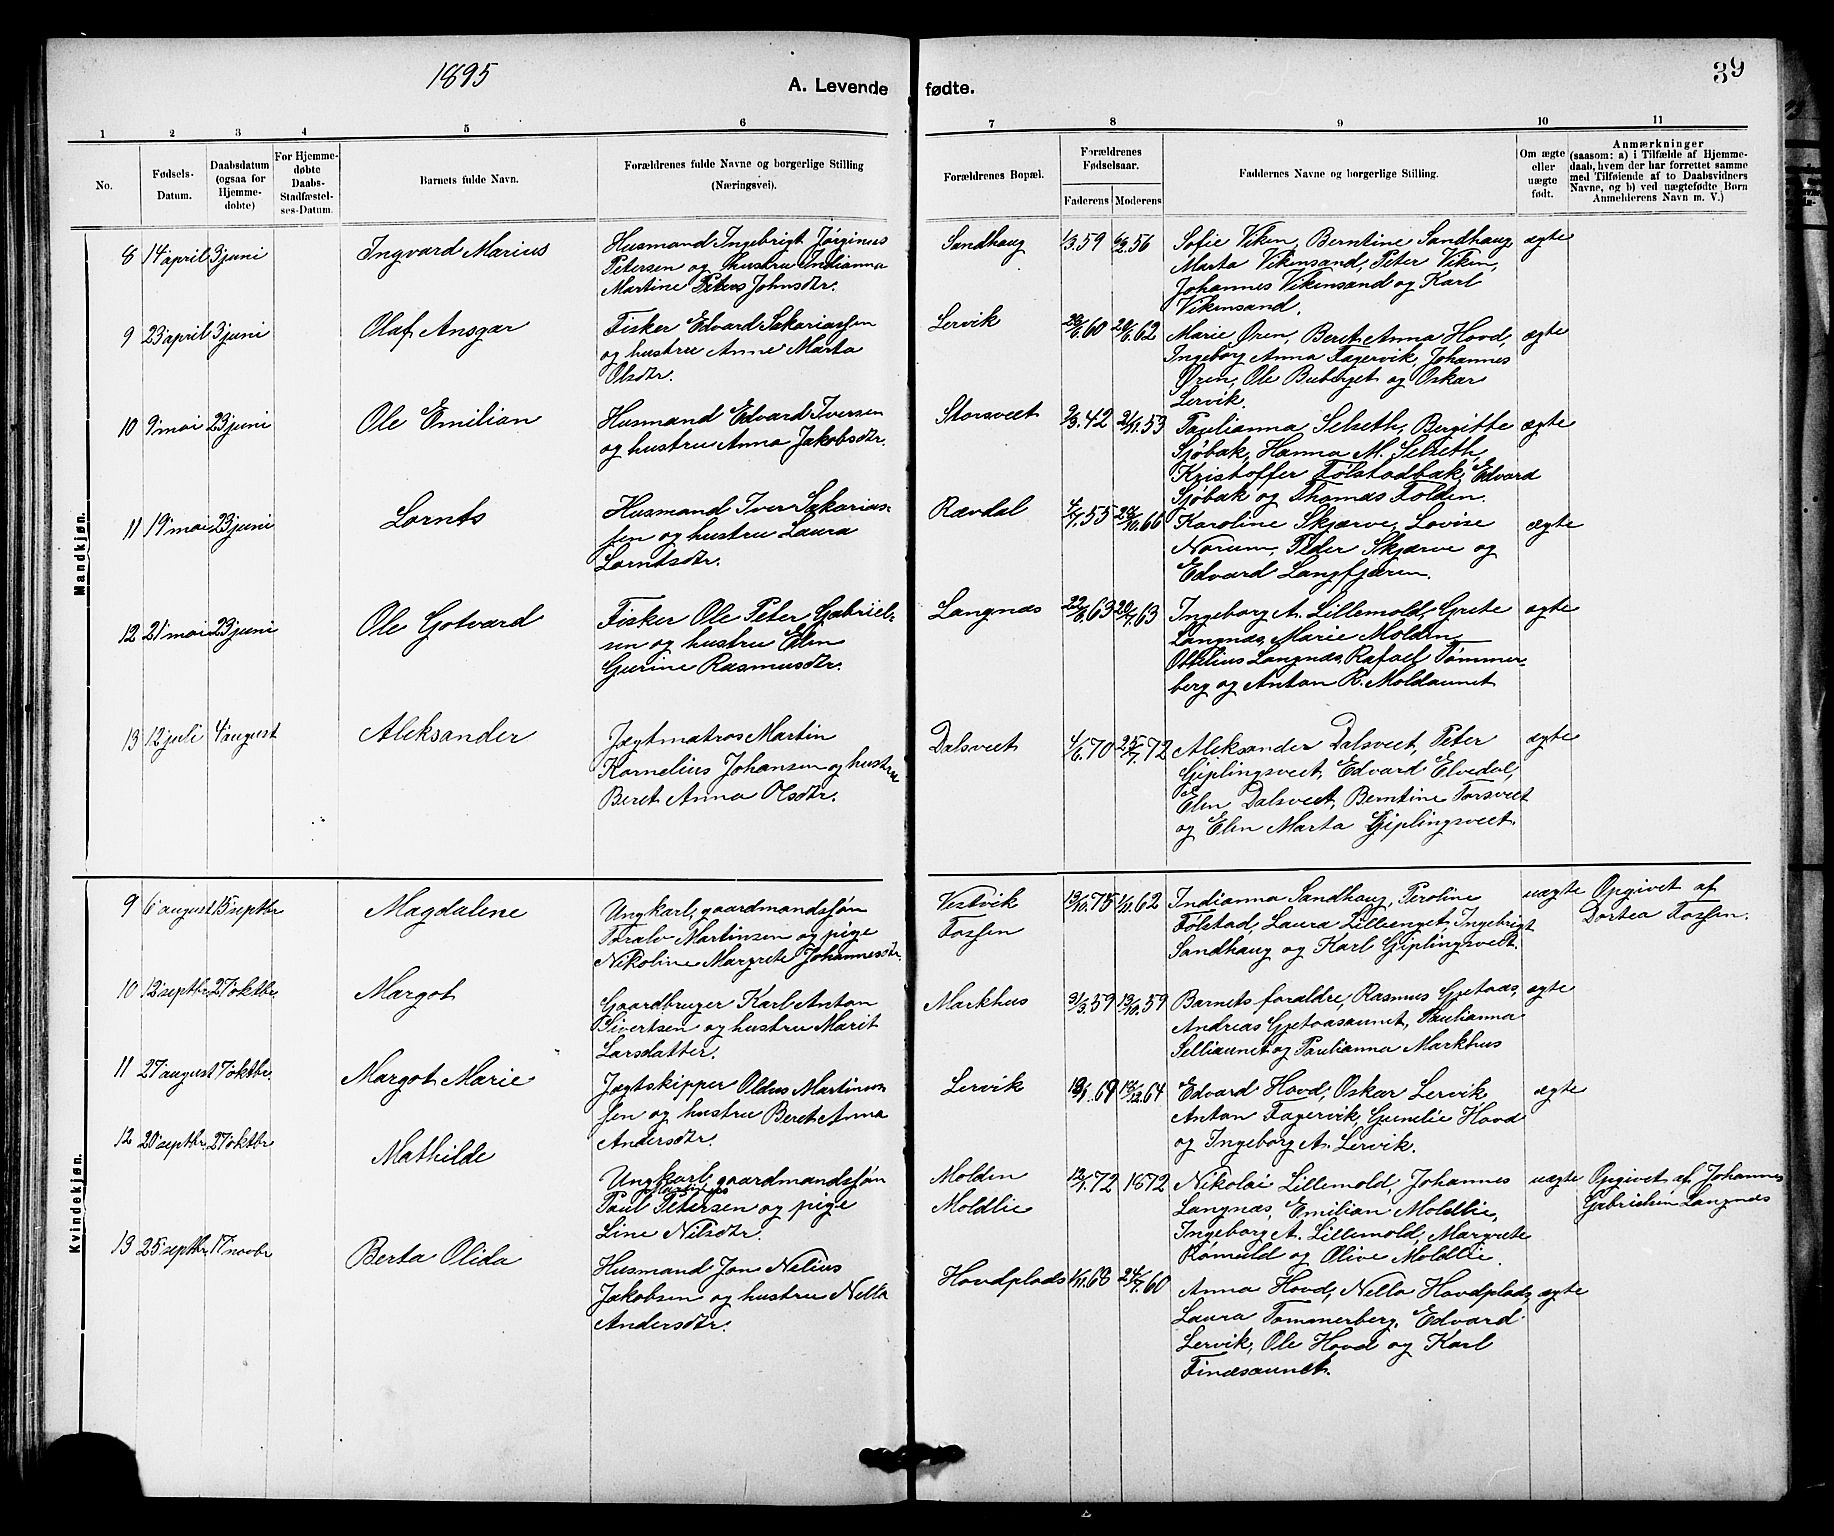 1895
A. Levende
fødte.
39
1 2 3 4 5 6 7 8 9 10 11
No.
Fødsels-
Datum.
Daabsdatum
(ogsaa for
Hjemme-
døbte)
For Hjemme-
døbte
Daabs-
Stadfæstel-
ses-Datum.
Barnets fulde Navn.
Forældrenes fulde Navne og borgerlige Stilling
(Næringsvei).
Forældrenes Bopæl.
Forældrenes
Fødselsaar.
Faderens Moderens
Faddernes Navne og borgerlige Stilling.
Om ægte
eller
uægte
født.
Anmærkninger
(saasom: a) i Tilfælde af Hjemme-
daab, hvem der har forrettet samme
med Tilføiende af to Daabsvidners
Navne, og b) ved uægtefødte Børn
Anmelderens Navn m. V.)
Mandkjøn.
8 14 april 3 juni
Ingvard Marius
Husmand Ingebrigt Jørginus
Petersen og hustru Indianna
Martine Johnsdtr.
Sandhaug
Sofie Viken, Berntine Sandhaug
Marta Vikensand, Peter Viken,
Johannes Vikensand og Karl
Vikensand.
ægte
9 23 april 3 juni
Olaf Ansgar
Fisker Edvard Sakariassen
og hustru Anne Marta
Olsdtr.
Lervik
Marie Øren, Beret Anna Hovd,
Ingeborg Anna Fagervik, Johannes
Øren, Ole Buberget og Oskar
Lervik.
ægte
10 9 mai 23 juni
Ole Emilian
Husmand Edvard Iversen
og hustru Anna Jakobsdtr.
Storsveet
Paulianna Selseth, Bergitte
Sjøbak, Hanna M. Selseth,
Kristoffer Følstadbak, Edvard
Sjøbak og Thomas Folden.
ægte
11 19 mai 23 juni
Lornts
Husmand Iver Sakarias-
sen og hustru Laura
Lorntsdtr.
Rævdal
Karoline Skjærve, Lovise
Norum, Peder Skjærve og
Edvard Langfjæren.
ægte
12 21 mai 23 juni
Ole Gotvard
Fisker Ole Peter Gabriel-
sen og hustru Elen
Gurine Rasmusdtr.
Langnæs
Ingeborg A. Lillemold, Grete
Langnæs, Marie Molden
Othilius Langnæs, Rafael Tømmer-
berg og Anton R. Moldaunet
ægte
13 12 juli 4 august
Aleksander
Jægtmatros Martin
Kornelius Johansen og hustru
Beret Anna Olsdtr.
Dalsveet
Aleksander Dalsveet, Peter
Giplingsveet, Edvard Elvedal,
Elen Dalsveet, Berntine Torsveet
og Elen Marta Giplingsveet.
ægte
Kvindekjøn.
9 6 august 15 septbr
Magdalene
Ungkarl, gaardmandssøn
Toralv Martinsen og pige
Nikoline Margrete Johannesdtr.
Vestvik
Fossen
Indianna Sandhaug, Peroline
Følstad, Laura Lillenget, Ingebrigt
Sandhaug og Karl Giplingsveet.
uægte
Opgivet af
Dortea Fossen.
10 12 septbr. 27 oktbr.
Margot
Gaardbruger Karl Anton
Sivertsen og hustru Marit
Larsdatter.
Markhus
Barnets forældre, Rasmus Gjetaas,
Andreas Gjetaasaunet, Paulianna
Selliaunet og Paulianna Markhus
ægte
11 27 august 7 oktbr.
Margot Marie
Jægtskipper Oldus Martinus-
sen og hustru Beret Anna
Andersdtr.
Lervik
Edvard Hovd, Oskar Lervik
Anton Fagervik, Gunelie Hovd
og Ingeborg A. Lervik.
ægte
12 20 septbr 27 oktbr
Mathilde
Ungkarl, gaardmandssøn
Paul Petersen og pige
Line Nilsdtr.
Molden
Moldlie
1872
Nikolai Lillemold, Johannes
Langnæs, Emilian Moldlie,
Ingeborg A. Lillemold, Margrete
Rømuld og Olive Moldlie.
uægte
Opgivet af Johannes
Gabrielsen Langnæs
13 25 septbr 17 novbr
Berta Olida
Husmand Jon Nelius
Jakobsen og hustru Nella
Andersdtr.
Hovdplads
Anna Hovd, Nella Hovdplads,
Laura Tømmerberg, Edvard
Lervik, Ole Hovd og Karl
Finæsaunet.
ægte